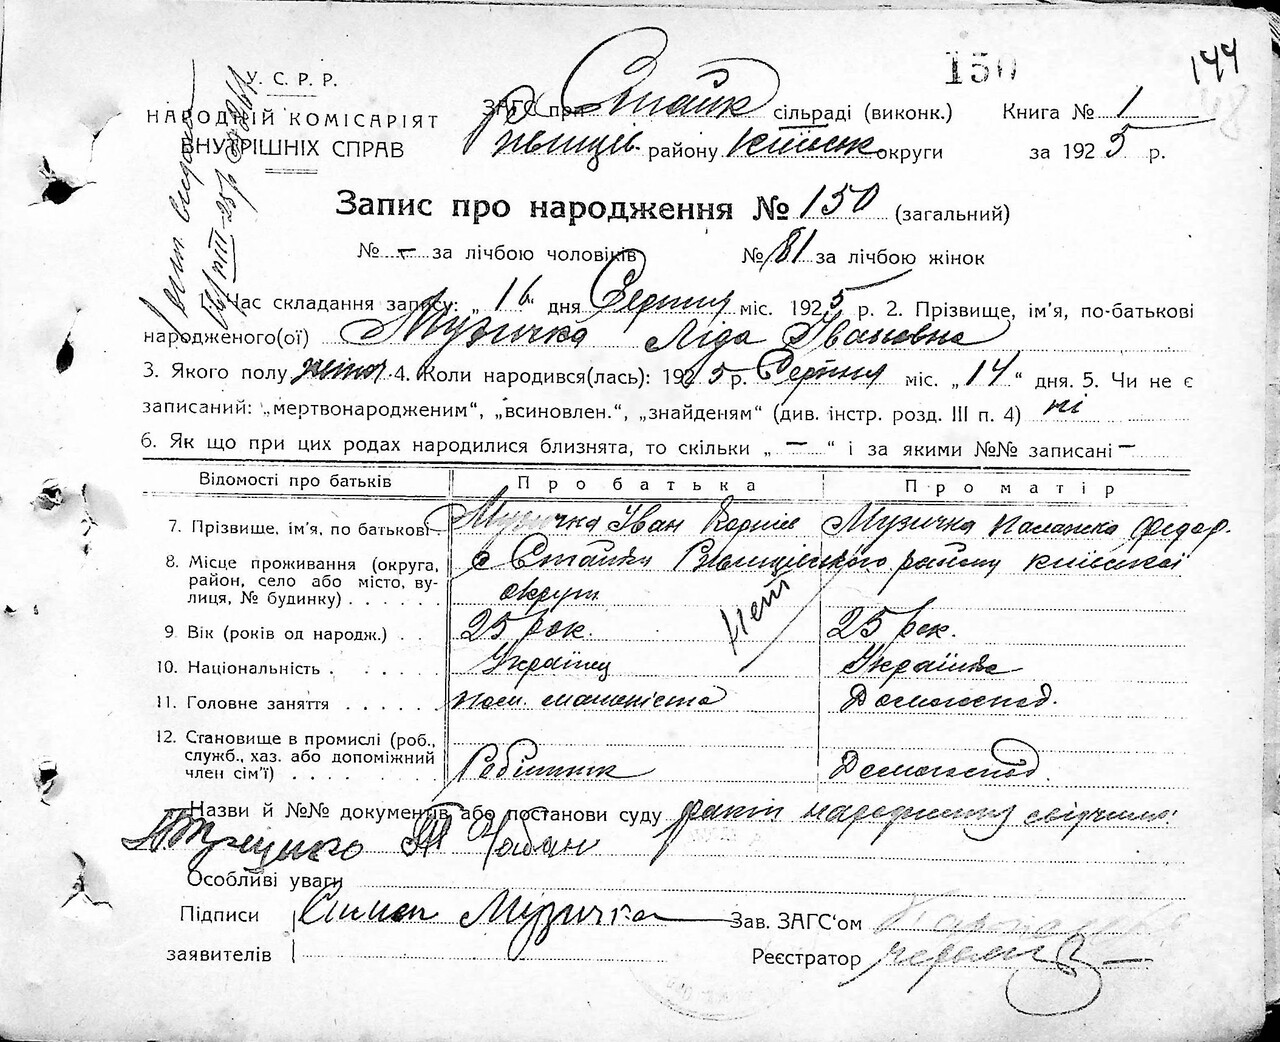 150
144
У. С. Р. Р.
НАРОДНІЙ КОМІСАРІЯТ
ВНУТРІШНІХ СПРАВ
ЗАГС при Стайк сільраді (виконк.)
Ржищів. району Київськ округи
Книга № 1
за 1925 р.
Запис про народження № 150 (загальний)
№ – за лічбою чоловіків № 81 за лічбою жінок
1. Час складання запису: „16“ дня Серпня міс. 1925 р. 2. Прізвище, ім'я, по-батькові
народженого(ої) Музичка Ліда Івановна
3. Якого полу жіноч 4. Коли народився(лась): 1925 р. Серпня міс. „14“ дня. 5. Чи не є
записаний: „мертвонародженим“, „всиновлен.“, „знайденям“ (див. інстр. розд. III п. 4) ні
6. Як що при цих родах народилися близнята, то скільки „ — “ і за якими №№ записані —
Відомості про батьків Про батька Про матір
7. Прізвище, ім'я, по батькові. Музичка Іван Корние Музичка Палажка Федор.
8. Місце проживання (округа, район, село або місто, вулиця, № будинку) . . . . . . с Стайки Ржищівського району київської
округи
9. Вік (років од народж.) . . 25 рок. 25 рок.
10. Національність . . . . . Українец Українка
11. Головне заняття . . . . . пом. машиніста Домогоспод.
12. Становище в промислі (роб., служб., хаз. або допоміжний член сім'ї) . . . . . . . Робітник Домогоспод.
Назви й №№ документів або постанови суду факт народження свідчимо:
Чабан
Особливі уваги
Підписи
заявителів
Музичка
Зав. ЗАГС‘ом
Реєстратор